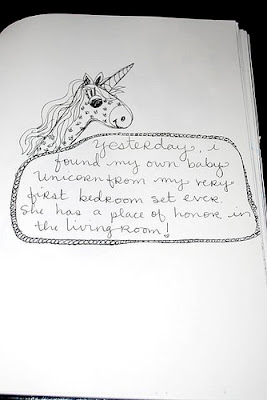 Yesterday, i
found my own baby
Unicorn from my very
first bedroom set ever.
She has a place of honor in
the living room!